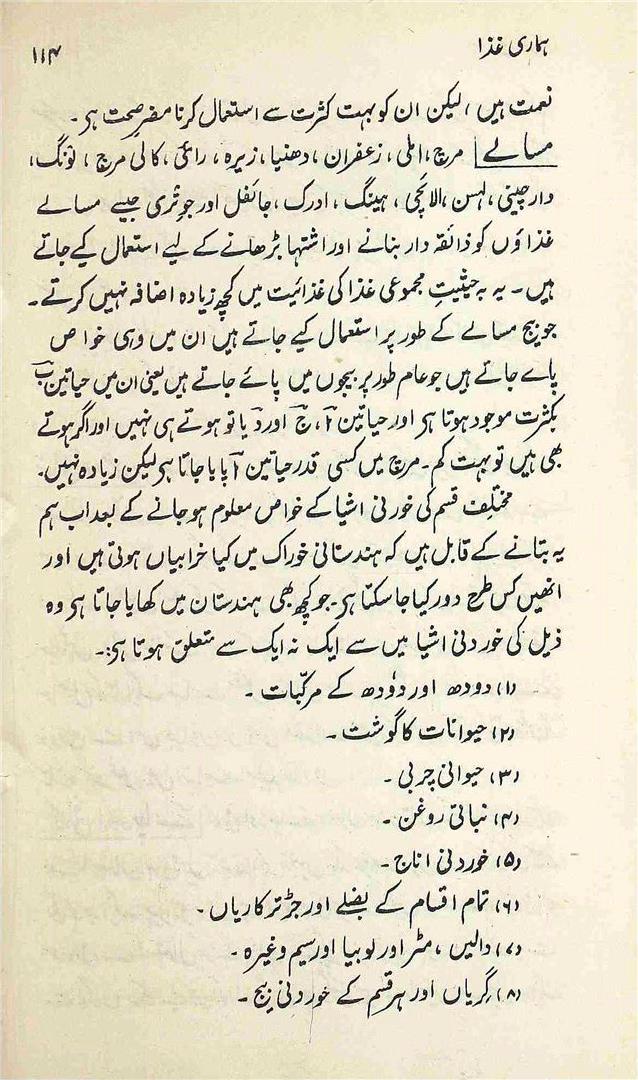 ہماری غذا ۱۱۴
نعمت ہیں، لیکن ان کو بہت کثرت سے استعمال کرنا مضر صحت ہی۔
مسالے مرچ، املی، زعفران، دھنیا، زیرہ، رائی، کالی مرچ، لونگ،
دار چینی، لہسن، الائچی، ہینگ، ادرک، جائفل اور جوتری جیسے مسالے
غذاؤں کو ذائقہ دار بنانے اور اشتہا بڑھانے کے لیے استعمال کیے جاتے
ہیں۔ یہ بہ حیثیت مجموعی غذا کی غذائیت میں کچھ زیادہ اضافہ نہیں کرتے۔
جو بیج مسالے کے طور پر استعمال کیے جاتے ہیں ان میں وہی خواص
پاے جاتے ہیں جو عام طور پر بیجوں میں پائے جاتے ہیں یعنی ان میں حیاتین ب
بکثرت موجود ہوتا ہی اور حیاتین آ، ج اور د یا تو ہوتے ہی نہیں اور اگر ہوتے
بھی ہیں تو بہت کم۔ مرچ میں کسی قدر حیاتین آ پایا جاتا ہی لیکن زیادہ نہیں۔
مختلف قسم کی خورنی اشیا کے خواص معلوم ہو جانے کے بعد اب ہم
یہ بتانے کے قابل ہیں کہ ہندستانی خوراک میں کیا خرابیاں ہوتی ہیں اور
انھیں کس طرح دور کیا جا سکتا ہی۔ جو کچھ بھی ہندستان میں کھایا جاتا ہی وہ
ذیل کی خوردنی اشیا میں سے ایک نہ ایک سے متعلق ہوتا ہی:۔
(۱) دودھ اور دودھ کے مرکبات۔
(۲) حیوانات کا گوشت۔
(۳) حیوانی چربی۔
(۴) نباتی روغن۔
(۵) خوردنی اناج۔
(۶) تمام اقسام کے بضلے اور جڑ ترکاریاں۔
(۷) دالیں، مٹر اور لوبیا اور سیم وغیرہ۔
(۸) گریاں اور ہر قسم کے خوردنی بیج۔